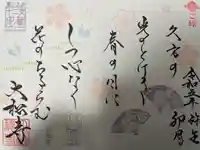 久方の
光のどけき
春の日に
しつ心なく
花のちるらむ
令和五年
卯月
大松寺